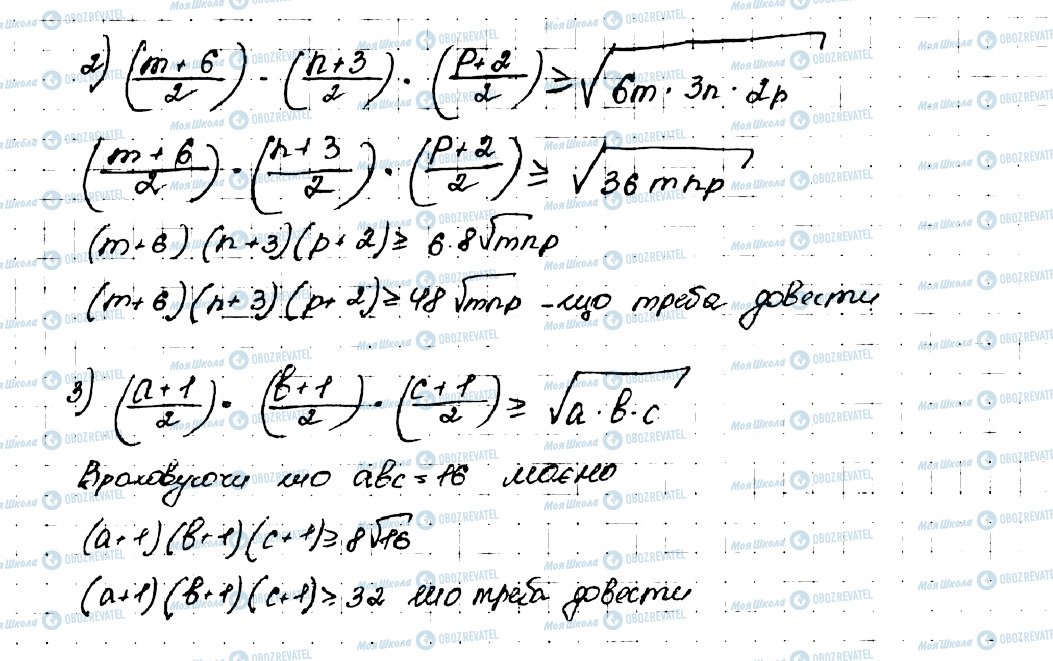 2) ((m+6)/2) · ((n+3)/2) · ((p+2)/2) ≥ √(6m · 3n · 2p)
((m+6)/2) · ((n+3)/2) · ((p+2)/2) ≥ √(36mnp)
(m+6)(n+3)(p+2) ≥ 6·8√mnp
(m+6)(n+3)(p+2) ≥ 48√mnp - що треба довести
3) ((a+1)/2) · ((b+1)/2) · ((c+1)/2) ≥ √(a·b·c)
Враховуючи що abc = 16 маємо
(a+1)(b+1)(c+1) ≥ 8√16
(a+1)(b+1)(c+1) ≥ 32 що треба довести
Моя Школа OBOZREVATEL